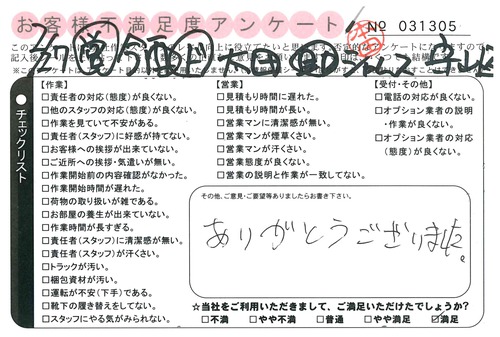 お客様不満足度アンケート
№ 031305
チェックリスト
【作業】
□責任者の対応(態度)が良くない。
□他のスタッフの対応(態度)が良くない。
□作業を見ていて不安がある。
□責任者(スタッフ)に好感が持てない。
□お客様への挨拶が出来ていない。
□ご近所への挨拶・気遣いが無い。
□作業開始前の内容確認がなかった。
□作業開始時間が遅れた。
□荷物の取り扱いが雑である。
□お部屋の養生が出来ていない。
□作業時間が長すぎる。
□責任者(スタッフ)に清潔感が無い。
□責任者(スタッフ)が汗くさい。
□トラックが汚い。
□梱包資材が汚い。
□運転が不安(下手)である。
□靴下の履き替えをしてない。
□スタッフにやる気がみられない。
【営業】
□見積もり時間に遅れた。
□見積もり時間が長い。
□営業マンに清潔感が無い。
□営業マンが煙草くさい。
□営業マンが汗くさい。
□営業態度が良くない。
□営業の説明と作業が一致してない。
【受付・その他】
□電話の対応が良くない。
□オプション業者の説明・作業が良くない。
□オプション業者の対応(態度)が良くない。
その他、ご意見・ご要望等ありましたらお書き下さい。
ありがとうございました。
☆当社をご利用いただきまして、ご満足いただけたでしょうか?
□不満 □やや不満 □普通 □やや満足 ☑満足